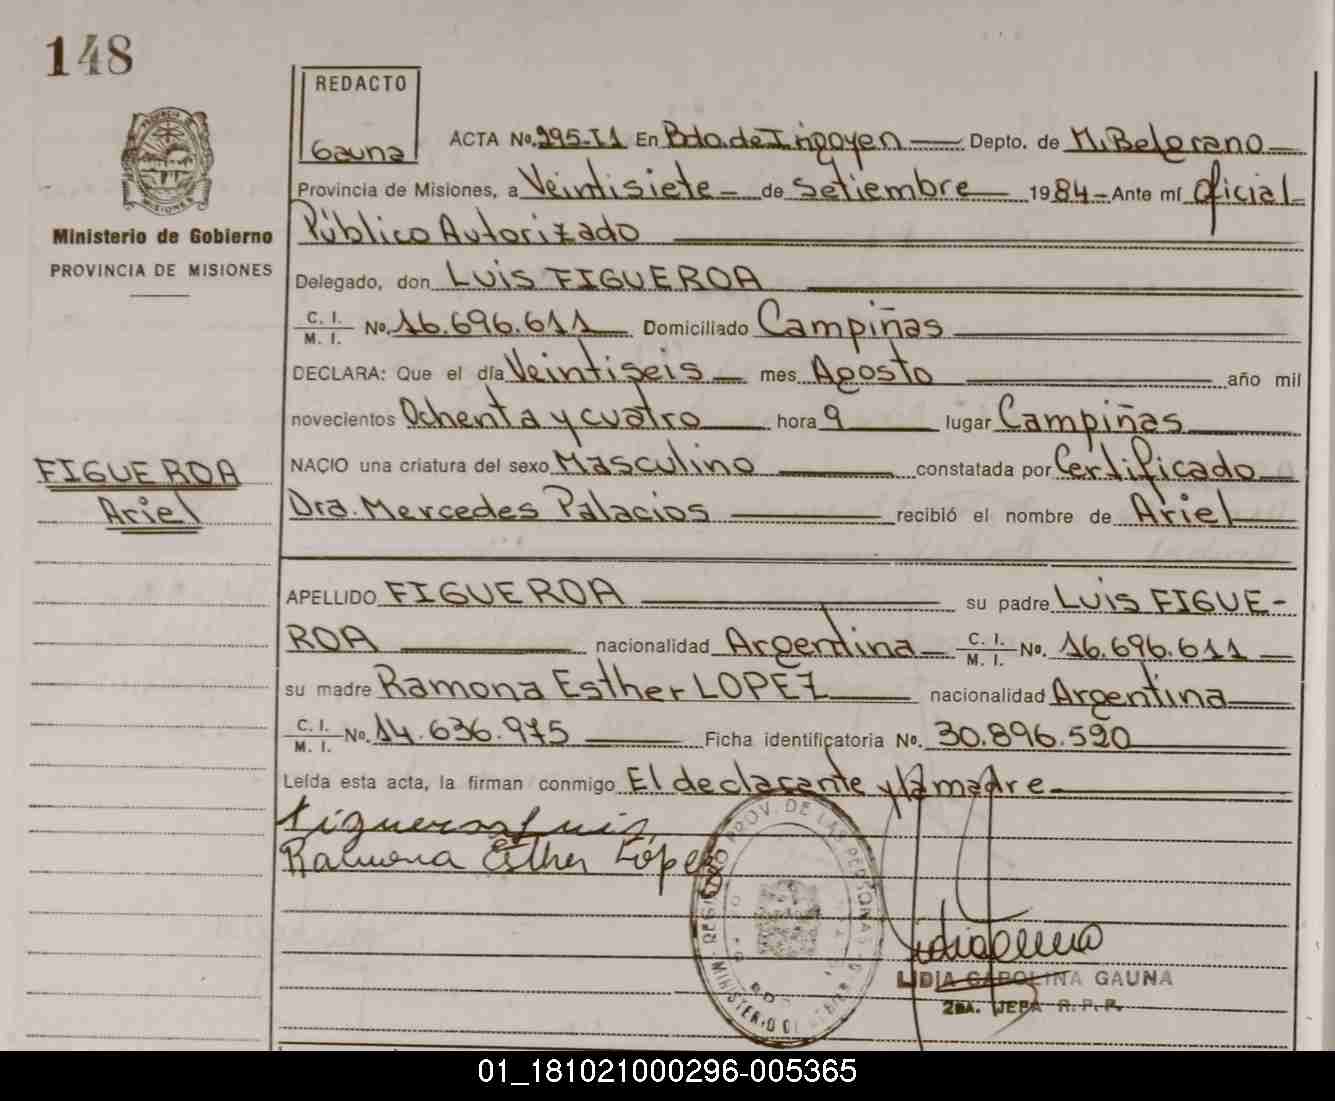 148
REDACTO
Gauna
ACTA No. 295-T1 En Bdo. de Irigoyen Depto. de M. Belgrano
Provincia de Misiones, a Veintisiete de Setiembre 1984 - Ante mí Oficial
Ministerio de Gobierno
PROVINCIA DE MISIONES
Público Autorizado
Delegado, don LUIS FIGUEROA
C. I.
M. I. No. 16.696.611 Domiciliado Campiñas
DECLARA: Que el día Veintiseis mes Agosto año mil
novecientos Ochenta y cuatro hora 9 lugar Campiñas
NACIO una criatura del sexo Masculino constatada por Certificado
Dra. Mercedes Palacios recibió el nombre de Ariel
FIGUEROA
Ariel
APELLIDO FIGUEROA su padre LUIS FIGUE-
ROA nacionalidad Argentina C. I. M. I. No. 16.696.611
su madre Ramona Esther LOPEZ nacionalidad Argentina
C. I.
M. I. No. 14.636.975 Ficha identificatoria No. 30.896.520
Leída esta acta, la firman conmigo El declarante y la madre
Figueroa Luis
Ramona Esther López
REGISTRO PROV. DE LAS PERSONAS
MINISTERIO DE
LIDIA CAROLINA GAUNA
2DA. JEFA R. P. P.
01_181021000296-005365